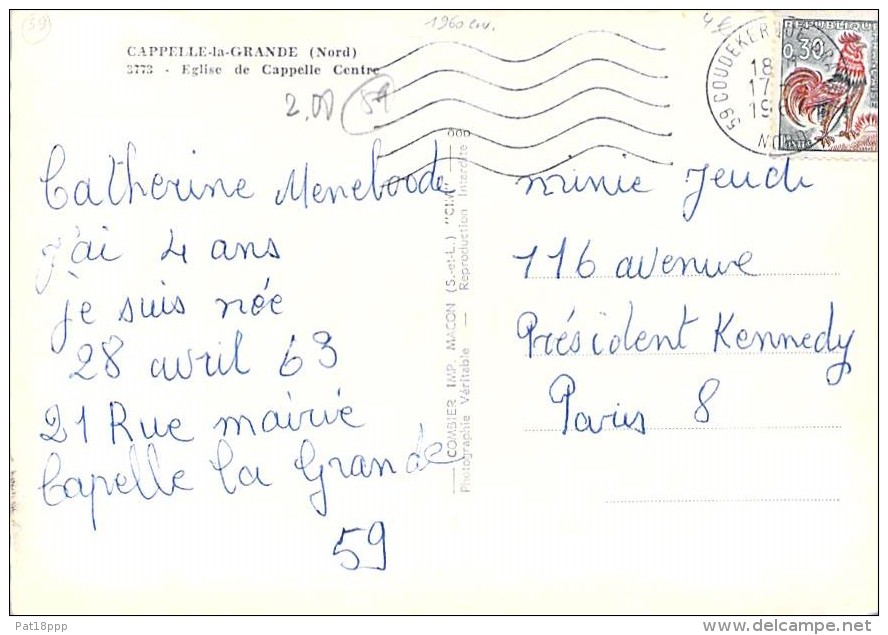 59
1960 env.
CAPPELLE-la-GRANDE (Nord)
3773 - Eglise de Cappelle Centre
2,00
59
59 COUDEKERQUE
18
17
19
NORD
REPUBLIQUE
0,30
Catherine Meneboode
j'ai 4 ans
je suis née
28 avril 63
21 Rue mairie
Capelle la Grande
59
COMBIER IMP. MACON (S.-et-L.) "CIM"
Photographie Véritable — Reproduction Interdite
minie Jeudi
116 avenue
Président Kennedy
Paris 8
Pat18ppp
delcampe.net